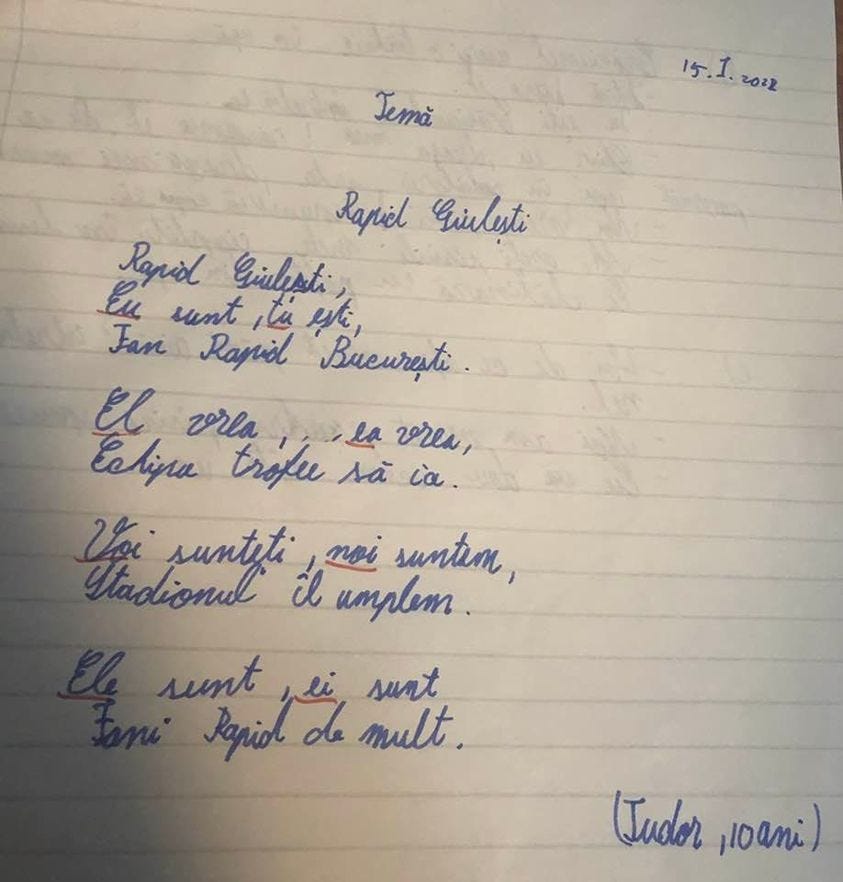 15.I.2022
Temă
Rapid Giulești
Rapid Giulești,
Eu sunt, tu ești,
Fan Rapid București.
El vrea, ... ea vrea,
Echipa trofee să ia.
Voi sunteți, noi suntem,
Stadionul îl umplem.
Ele sunt, ei sunt
Fani Rapid de mult.
(Tudor, 10 ani)